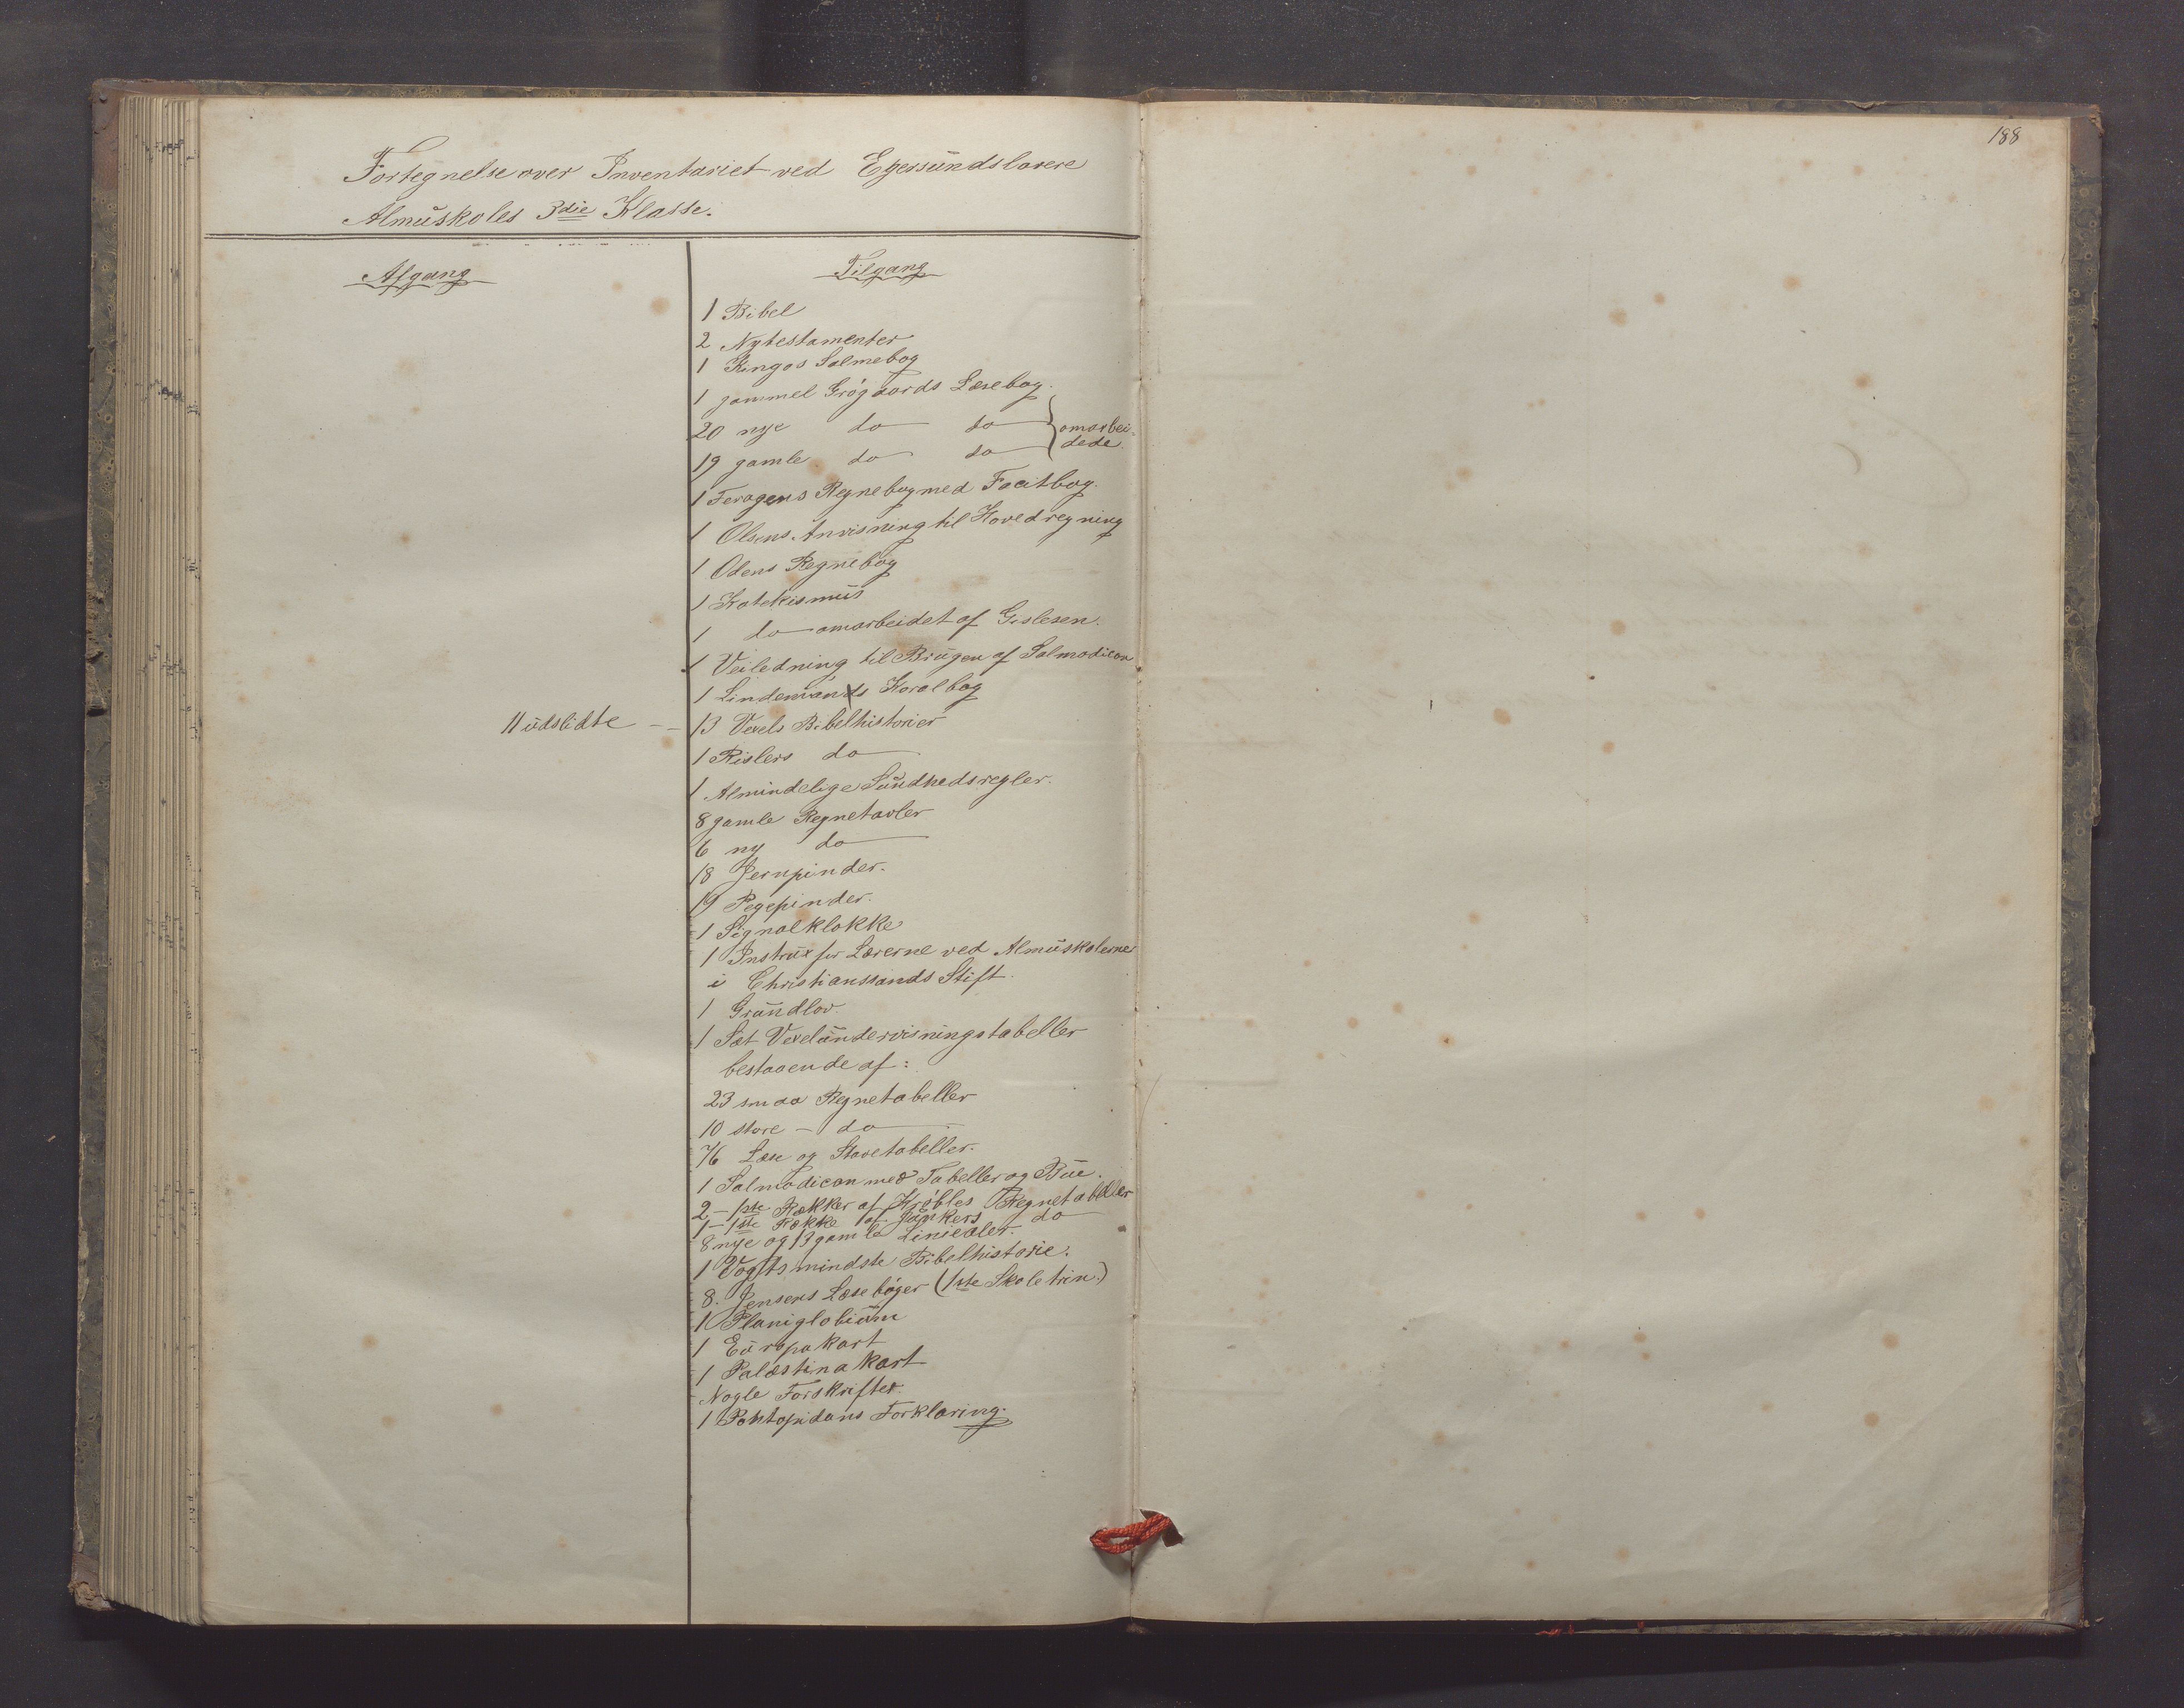 188
Fortegnelse over Inventariet ved Egersunds lavere
Almuskoles 3die Klasse.
Afgang
Tilgang
1 Bibel
2 Nytestamenter
1 Kingos Salmebog
1 gammel Grøgaards Læsebog.
20 nye do do } omarbei-
19 gamle do do } dede.
1 Feragens Regnebog med Facitbog.
1 Olsens Anvisning til Hovedregning
1 Odens Regnebog
1 Katekismus
1 do omarbeidet af Gislesen.
1 Veiledning til Brugen af Salmodicon
1 Lindemands Koralbog
11 udslidte - - 13 Vexels Bibelhistorier
1 Rislers do
1 Almindelige Sundhedsregler.
8 gamle Regnetavler
6 ny do
18 Jernpinder.
19 Pegepinder.
1 Signalklokke
1 Instrux for Lærerne ved Almuskolerne
i Christianssands Stift.
1 Grundlov.
1 Sæt Vexelundervisningstabeller
bestaaende af:
23 smaa Regnetabeller
10 store - do
76 Læse og Stavetabeller.
1 Salmodicon med Tabeller og Bue.
2 - 1ste Rækker af Krøbles Regnetabeller
1 - 1ste Række af Junkers do
8 nye og 13 gamle Linealer.
1 Vogts mindste Bibelhistorie.
8. Jensens Læsebøger (1ste Skoletrin.)
1 Planiglobium
1 Europakart
1 Palæstinakart
Nogle Forskrifter.
1 Pontopidans Forklaring.